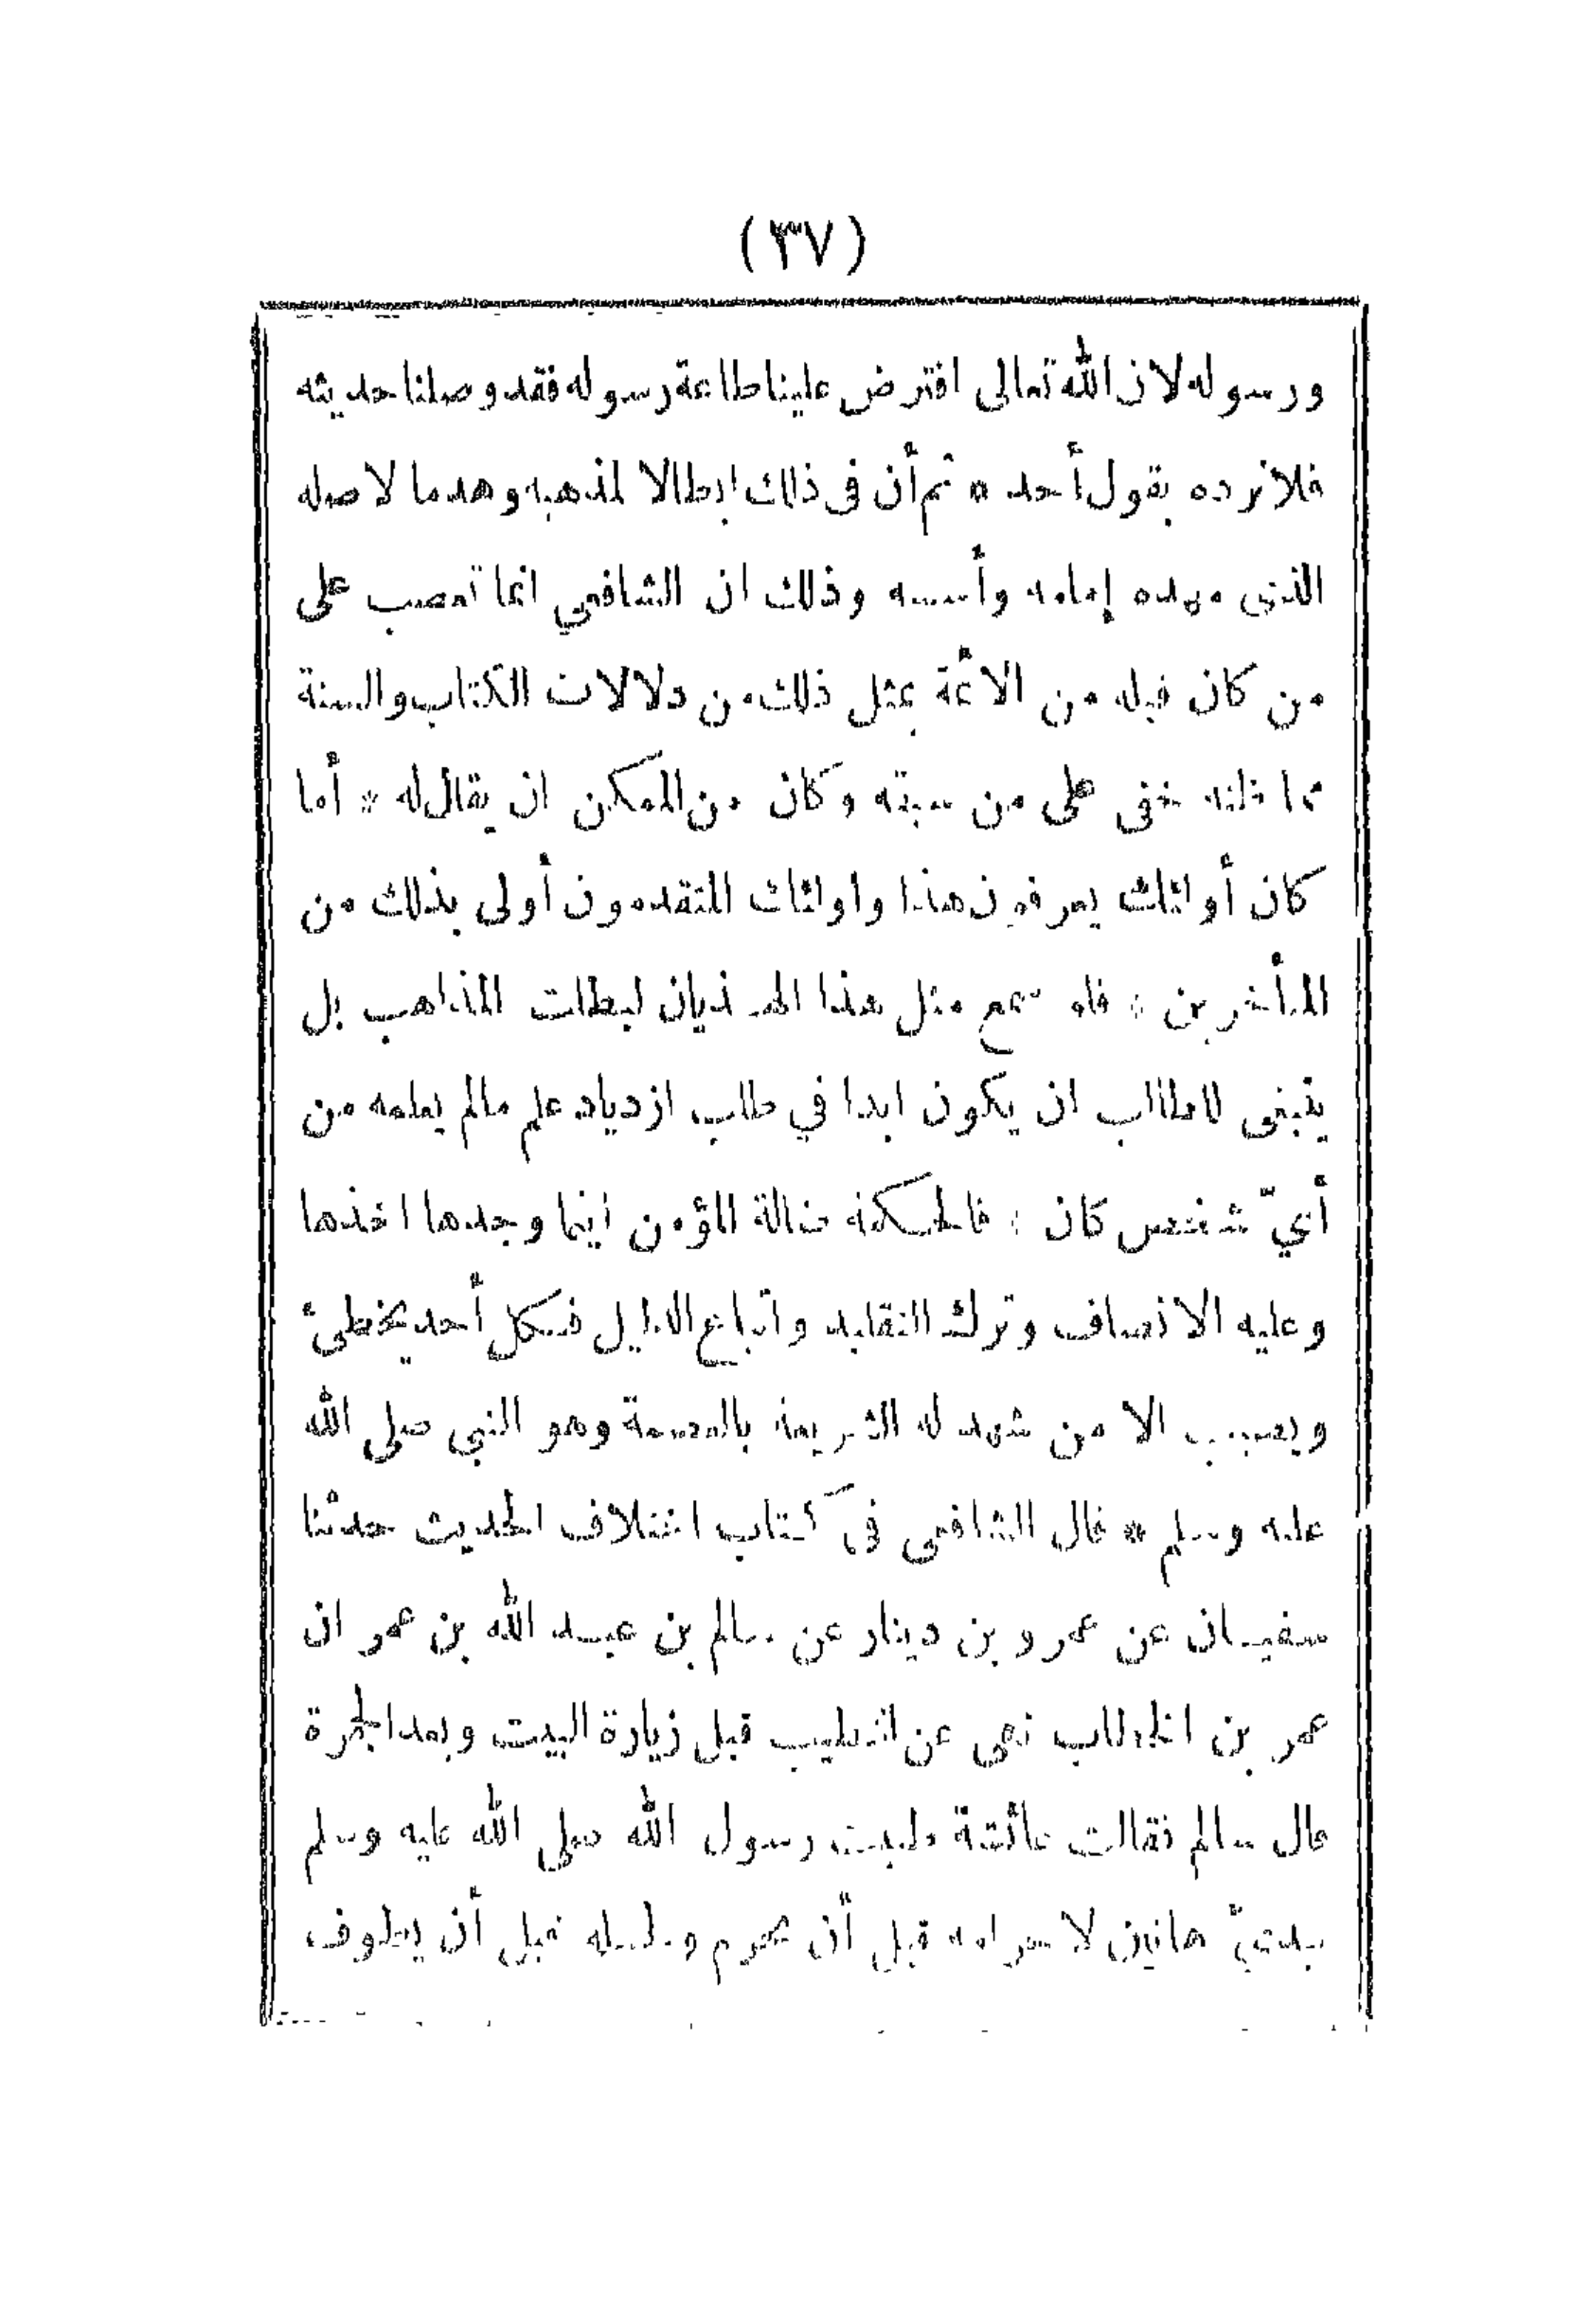 (٣٧)
ورسوله لان الله تعالى افترض علينا طاعة رسوله فقد وصلنا حديثه
فلا نرده بقول أحد * ثم أن فى ذلك ابطالا لمذهبه وهدما لاصله
الذى مهده إمامه وأسسه وذلك ان الشافعي انما تعصب على
من كان قبله من الأئمة بمثل ذلك من دلالات الكتاب والسنة
مما ظنه خفى على من سبقه وكان من الممكن ان يقال له * أما
كان أولئك يعرفون هذا واولئك المتقدمون أولى بذلك من
المتأخرين * فلو سمع مثل هذا الهذيان لبطلت المذاهب بل
ينبغى للطالب ان يكون ابدا في طلب ازدياد علم مالم يعلمه من
أيّ شخص كان : فالحكمة ضالة المؤمن اينما وجدها اخذها
وعليه الانصاف وترك التقليد واتباع الدليل فكل أحد يخطئ
ويصيب الا من شهد له الشريعة بالعصمة وهو النبي صلى الله
عليه وسلم * قال الشافعى فى كتاب اختلاف الحديث حدثنا
سفيان عن عمرو بن دينار عن سالم بن عبد الله بن عمر ان
عمر بن الخطاب نهى عن التطيب قبل زيارة البيت وبعد الجمرة
قال سالم فقالت عائشة طيبت رسول الله صلى الله عليه وسلم
بيديّ هاتين لاحرامه قبل أن يحرم ولحله قبل أن يطوف